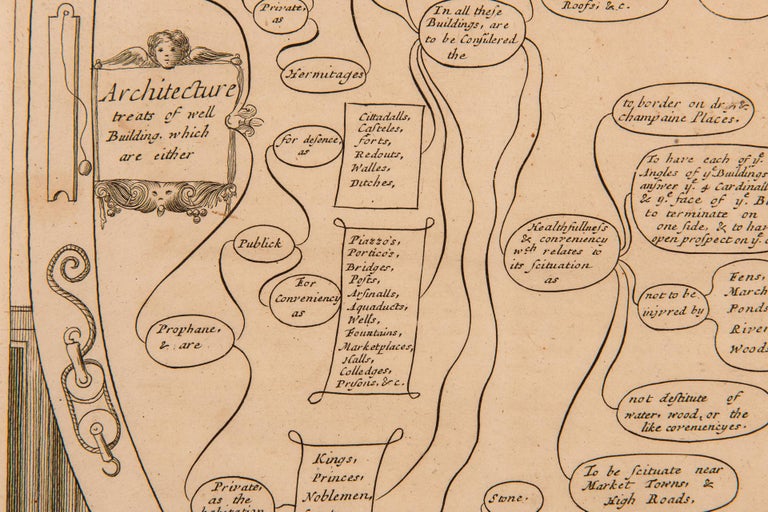 Private,
as
Hermitages
In all these
Buildings, are
to be Considered
the
Roofs, &c.
Architecture
treats of well
Building, which
are either
for defence,
as
Cittadalls,
Casteles,
forts,
Redouts,
Walles,
Ditches,
Publick
For
Conveniency
as
Piazzo's,
Portico's,
Bridges,
Posts,
Arsinalls,
Aquaducts,
Wells,
Fountains,
Marketplaces,
Halls,
Colledges,
Prysons, &c.
Prophane,
& are
Private,
as the
habitation
Kings,
Princes,
Noblemen,
Healthfullness
& conveniency
wch relates to
its scituation
as
to border on dry, &
champaine Places.
To have each of ye
Angles of ye Buildings
answer ye 4 Cardinall
& ye face of ye
to terminate on
one side, & to
open prospect on ye
not to be
injured by
Fens,
March
Ponds
River
Woods
not destitute of
water, wood, or the
like coveniencyes.
To be scituate near
Market Towns, &
High Roads,
Stone.